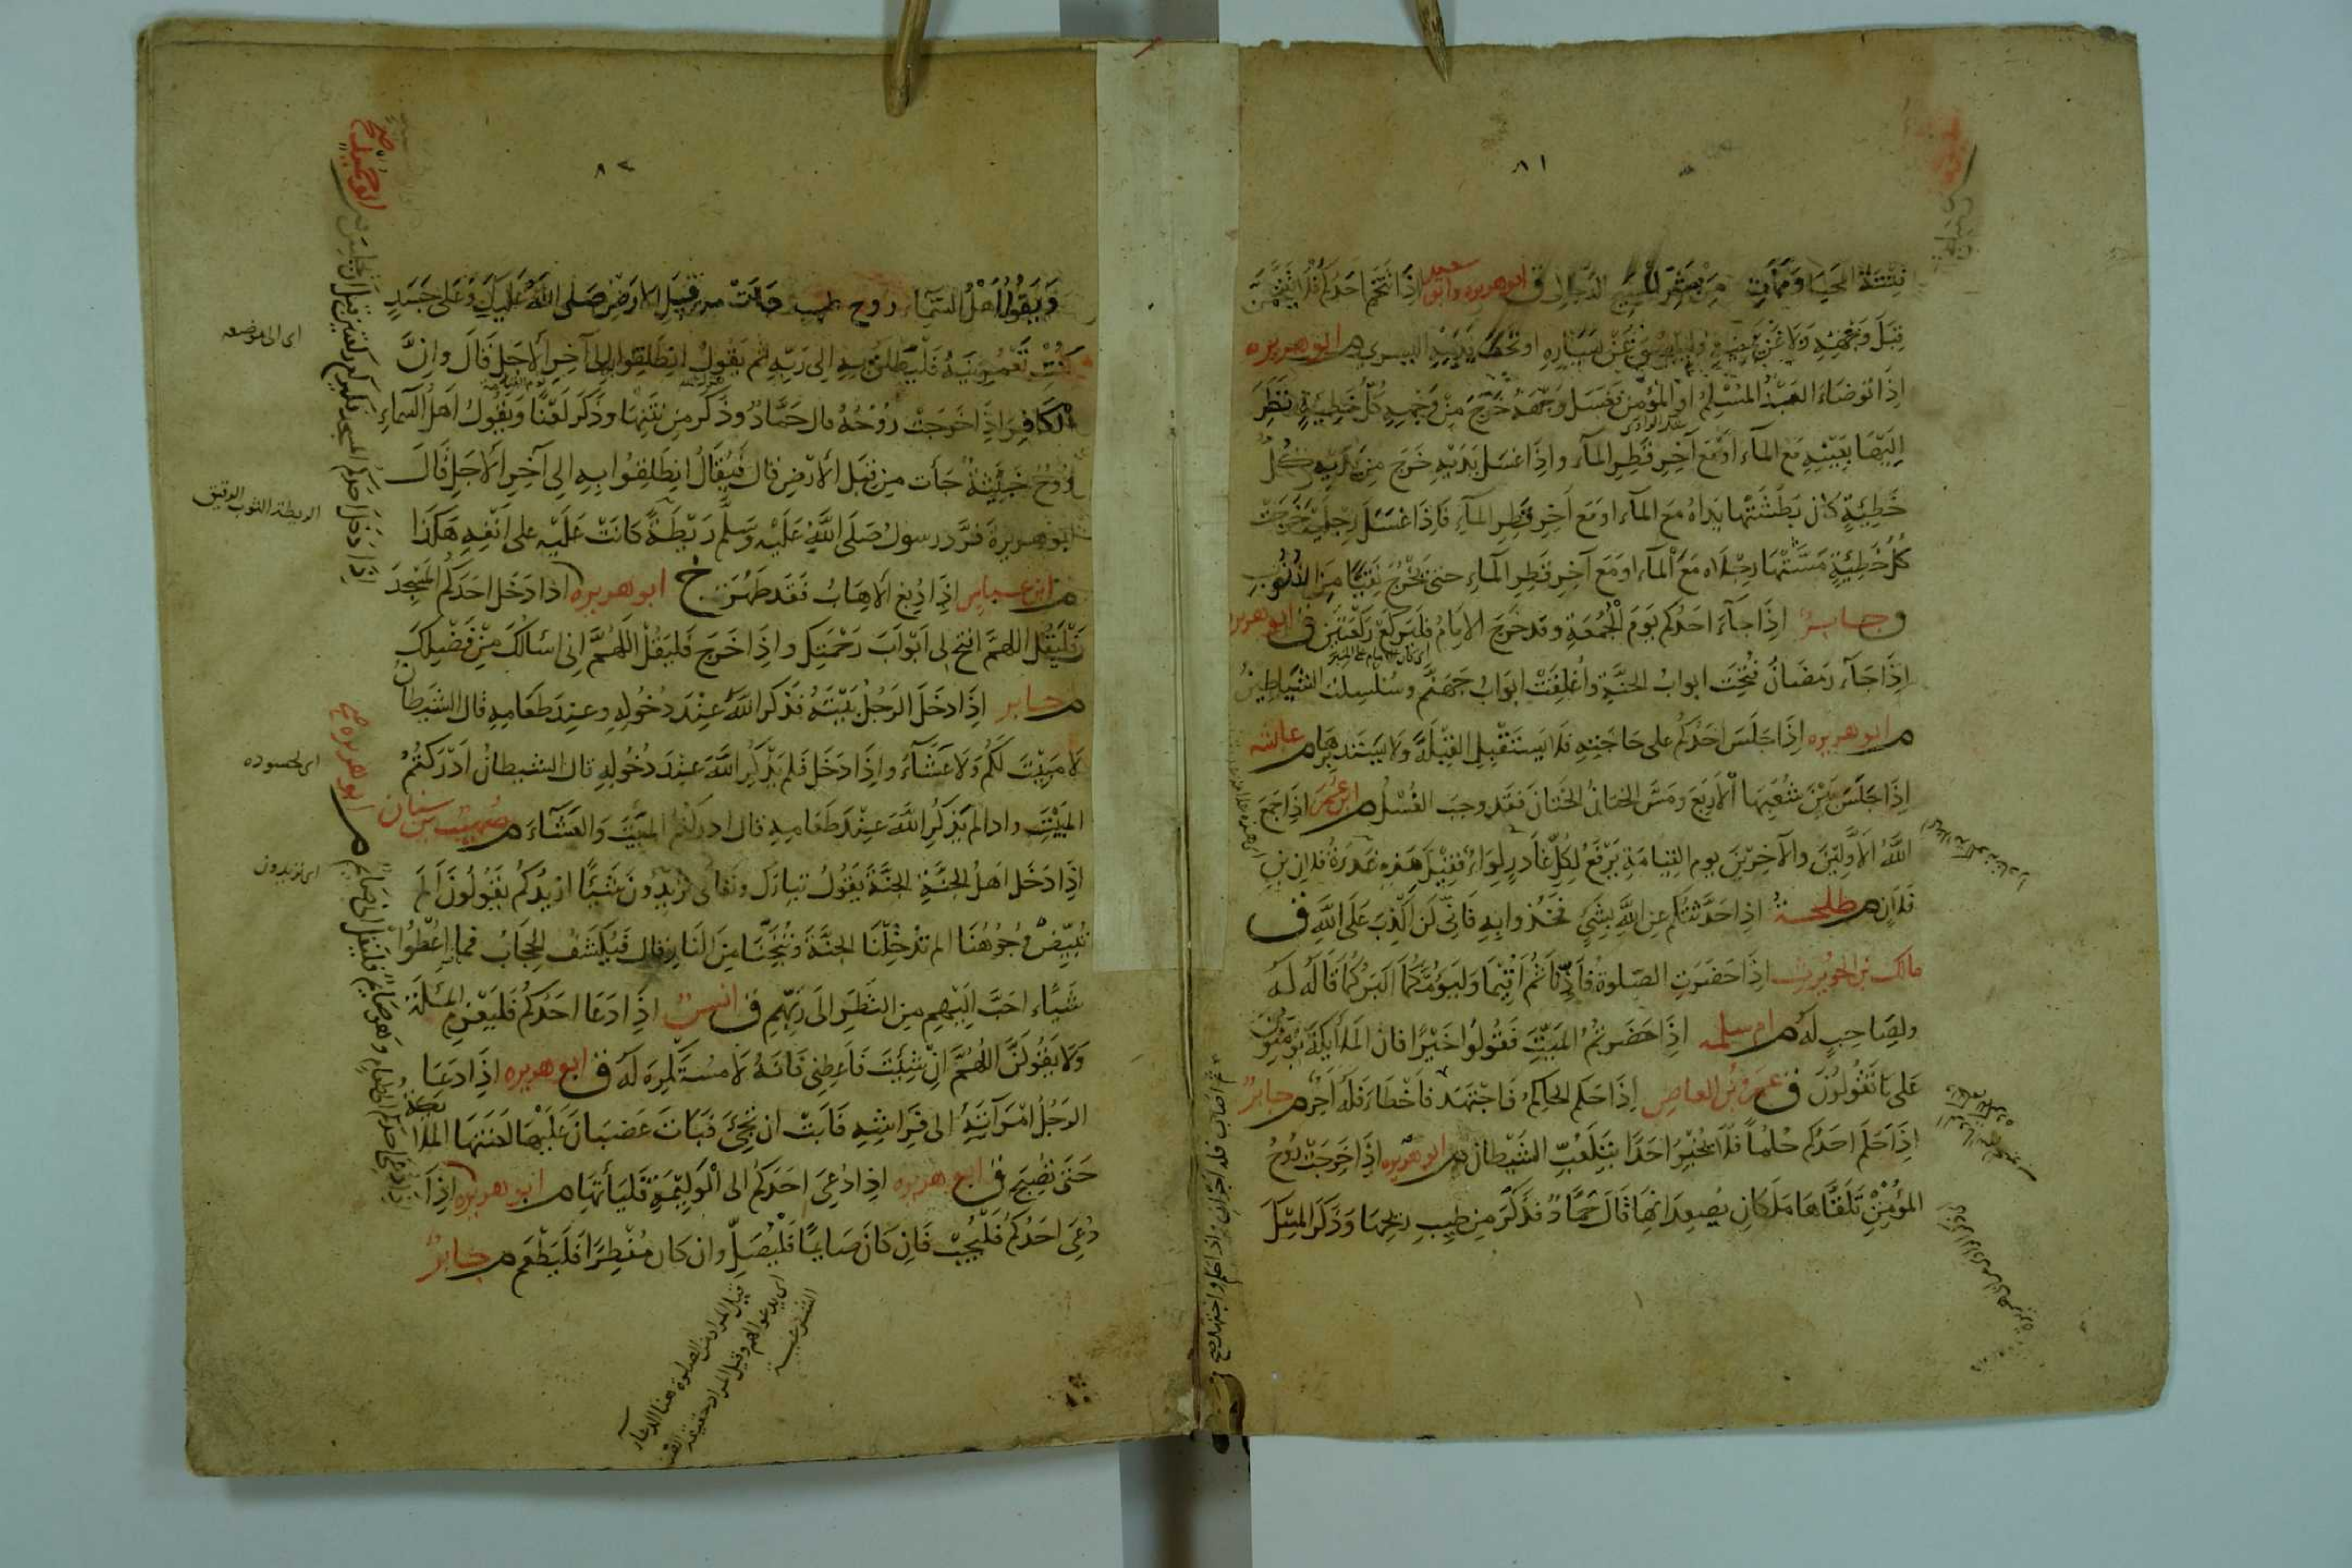 ٨١
فتنة المحيا وممات من شر المسيح الدجال ق ابو هريرة وابو سعيد اذا تنخم احدكم فلا يتنخمن
قبل وجهه ولا عن يمينه وليبصق عن يساره او تحت قدمه اليسرى م ابو هريره
اذا توضاء العبد المسلم او المؤمن فغسل وجهه خرج من وجهه كل خطيئة نظر
اليها بعينيه مع الماء او مع آخر قطر الماء واذا غسل يديه خرج من يديه كل
خطيئة كان بطشتها يداه مع الماء او مع آخر قطر الماء فاذا غسل رجليه خرجت
كل خطيئة مشتها رجلاه مع الماء او مع آخر قطر الماء حتى يخرج نقيا من الذنوب
ق جابر اذا جاء احدكم يوم الجمعة وقد خرج الامام فليركع ركعتين ق ابو هريره
اذا جاء رمضان فتحت ابواب الجنة واغلقت ابواب جهنم وسلسلت الشياطين
م ابو هريره اذا جلس احدكم على حاجته فلا يستقبل القبلة ولا يستدبرها م عائشه
اذا جلس بين شعبها الاربع ومس الختان الختان فقد وجب الغسل م ابن عمر اذا جمع
الله الاولين والآخرين يوم القيامة يرفع لكل غادر لواء فقيل هذه غدرة فلان بن
فلان م طلحة اذا حدثتكم عن الله بشيء فخذوا به فاني لن اكذب على الله ق
مالك بن الحويرث اذا حضرت الصلوة فاذنا ثم اقيما وليؤمكما اكبركما قاله له
ولصاحب له م ام سلمه اذا حضرتم الميت فقولوا خيرا فان الملائكة يؤمنون
على ما تقولون ق عمرو بن العاص اذا حكم الحاكم فاجتهد فاخطاء فله اجر م جابر
اذا حلم احدكم حلما فلا يخبر احدا بتلعب الشيطان م ابو هريره اذا خرجت روح
المؤمن تلقاها ملكان يصعدانها قال حماد فذكر من طيب ريحها وذكر المسك
٨٢
ويقول اهل السماء روح طيبة جاءت من قبل الارض صلى الله عليك وعلى جسد
كنت تعمرينه فلينطلق به الى ربه ثم يقول انطلقوا به الى آخر الاجل قال وان
الكافر اذا خرجت روحه قال حماد وذكر من نتنها وذكر لعنا ويقول اهل السماء
روح خبيثة جاءت من قبل الارض قال فيقال انطلقوا به الى آخر الاجل قال
ابو هريرة فرد رسول صلى الله عليه وسلم ريطة كانت عليه على انفه هكذا
م ابن عباس اذا دبغ الاهاب فقد طهر خ ابو هريره اذا دخل احدكم المسجد
فليقل اللهم افتح لى ابواب رحمتك واذا خرج فليقل اللهم انى اسالك من فضلك
م جابر اذا دخل الرجل بيته فذكر الله عند دخوله وعند طعامه قال الشيطان
لا مبيت لكم ولا عشاء واذا دخل فلم يذكر الله عند دخوله قال الشيطان ادركتم
المبيت واذا لم يذكر الله عند طعامه قال ادركتم المبيت والعشاء م صهيب بن سنان
اذا دخل اهل الجنة الجنة يقول تبارك وتعالى تريدون شيئا ازيدكم يقولون الم
تبيض وجوهنا الم تدخلنا الجنة وتنجنا من النار قال فيكشف الحجاب فما اعطوا
شياء احب اليهم من النظر الى ربهم ق انس اذا دعا احدكم فليعزم المسئلة
ولا يقولن اللهم ان شئت فاعطنى فانه لا مستكره له ق ابو هريره اذا دعا
الرجل امرأته الى فراشه فابت ان تجئ فبات غضبان عليها لعنتها الملائكة
حتى تصبح ق ابو هريره اذا دعى احدكم الى الوليمة فليأتها م ابو هريره اذا
دعى احدكم فليجب فان كان صايما فليصل وان كان مفطرا فليطعم م جابر
اى الى موضعه
الريطة الثوب الرقيق
اى تريدون
ابو هريره
قيل المراد من الصلوة هنا الدعاء
اى يدعو لهم وقيل المراد حقيقة
الشرعية